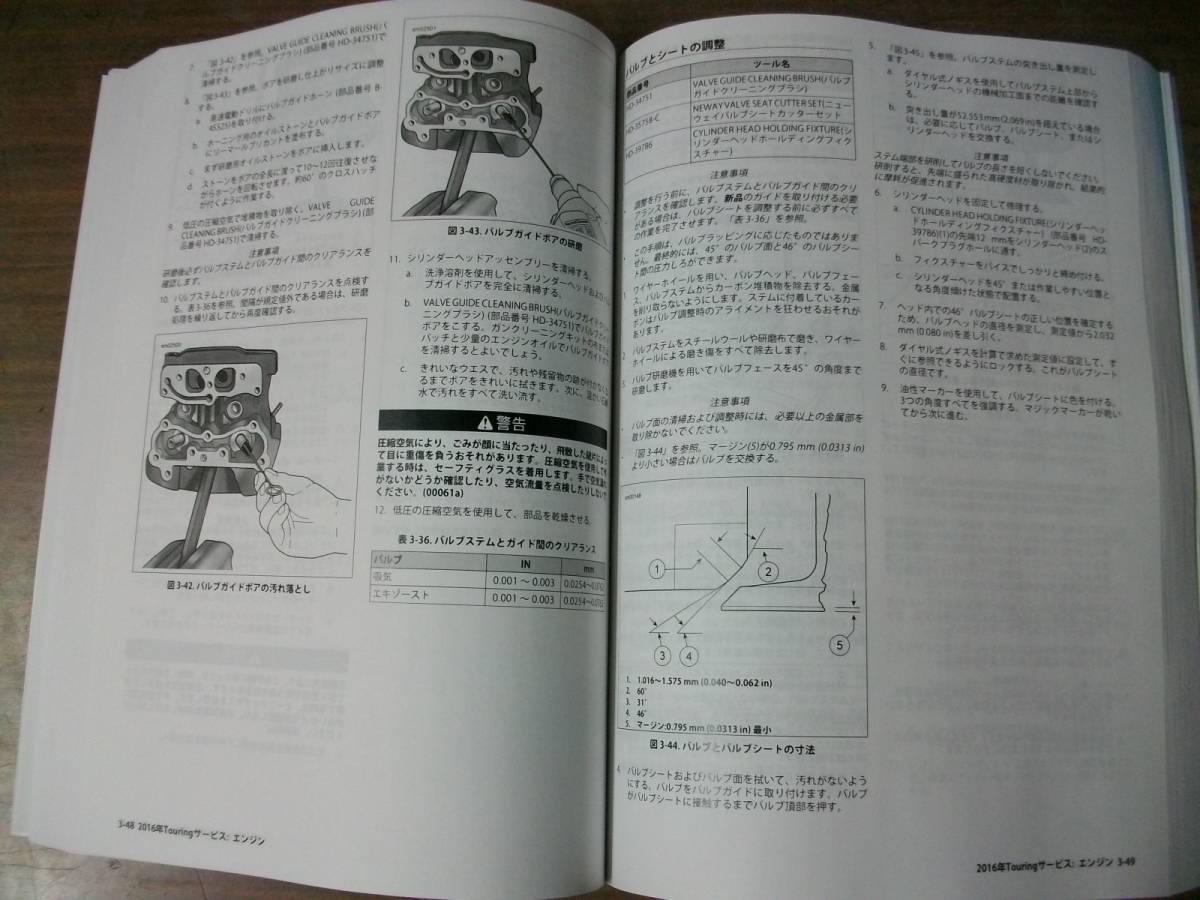 7. 「図3-42」を参照。VALVE GUIDE CLEANING BRUSH(バ
ルブガイドクリーニングブラシ) (部品番号 HD-34751)で
清掃する。
8. 「図3-43」を参照。ボアを研磨し仕上がりサイズに調整
する。
a. 高速電動ドリルにバルブガイドホーン (部品番号 B-
45525)を取り付ける。
b. ホーニング用のオイルストーンとバルブガイドボア
にリーマールブリカントを塗布する。
c. まず研磨用オイルストーンをボアに挿入します。
d. ストーンをボアの全長に渡って10～12回往復させな
がらホーンを回転させます。約60°のクロスハッチ
が付くように作業する。
9. 低圧の圧縮空気で堆積物を取り除く。VALVE GUIDE
CLEANING BRUSH(バルブガイドクリーニングブラシ) (部
品番号 HD-34751)で清掃する。
注意事項
研磨後必ずバルブステムとバルブガイド間のクリアランスを
確認します。
10. バルブステムとバルブガイド間のクリアランスを点検す
る。表3-36を参照。間隔が規定値外である場合は、研磨
処理を繰り返してから再度確認する。
図3-42. バルブガイドボアの汚れ落とし
3-48 2016年Touringサービス: エンジン
図3-43. バルブガイドボアの研磨
11. シリンダーヘッドアッセンブリーを清掃する。
a. 洗浄溶剤を使用して、シリンダーヘッドおよびバル
ブガイドボアを完全に清掃する。
b. VALVE GUIDE CLEANING BRUSH(バルブガイドクリー
ニングブラシ) (部品番号 HD-34751)でバルブガイド
ボアをこする。ガンクリーニングキットの布または
パッチと少量のエンジンオイルでバルブガイドボア
を清掃するとよいでしょう。
c. きれいなウエスで、汚れや残留物の跡が付かなくな
るまでボアをきれいに拭きます。次に、温かい石鹸
水で汚れをすべて洗い流す。
警告
圧縮空気により、ごみが顔に当たったり、飛散した破片によっ
て目に重傷を負うおそれがあります。圧縮空気を使用して作
業する時は、セーフティグラスを着用します。手で空気漏れ
がないかどうか確認したり、空気流量を点検したりしないで
ください。(00061a)
12. 低圧の圧縮空気を使用して、部品を乾燥させる。
表3-36. バルブステムとガイド間のクリアランス
バルブ IN mm
吸気 0.001 ～ 0.003 0.0254～0.0762
エキゾースト 0.001 ～ 0.003 0.0254～0.0762
バルブとシートの調整
部品番号 ツール名
HD-34751 VALVE GUIDE CLEANING BRUSH(バルブ
ガイドクリーニングブラシ)
HD-35758-C NEWAY VALVE SEAT CUTTER SET(ニュー
ウェイバルブシートカッターセット
HD-39786 CYLINDER HEAD HOLDING FIXTURE(シリ
ンダーヘッドホールディングフィクス
チャー)
注意事項
調整を行う前に、バルブステムとバルブガイド間のクリ
アランスを確認します。新品のガイドを取り付ける必要
がある場合は、バルブシートを調整する前に必ずすべて
の作業を完了させます。「表3-36」を参照。
この手順は、バルブラッピングに応じたものではありま
せん。最終的には、45°のバルブ面と46°のバルブシー
ト間の圧力しろができます。
1. ワイヤーホイールを用い、バルブヘッド、バルブフェー
ス、バルブステムからカーボン堆積物を除去する。金属
を削り取らないようにします。ステムに付着しているカー
ボンはバルブ調整時のアライメントを狂わせるおそれが
あります。
2. バルブステムをスチールウールや研磨布で磨き、ワイヤー
ホイールによる磨き傷をすべて除去します。
3. バルブ研磨機を用いてバルブフェースを45°の角度まで
研磨します。
注意事項
バルブ面の清掃および調整時には、必要以上の金属部を
取り除かないでください。
「図3-44」を参照。マージン(5)が0.795 mm (0.0313 in)
より小さい場合はバルブを交換する。
1
2
3
4
5
1. 1.016～1.575 mm (0.040～0.062 in)
2. 60°
3. 31°
4. 46°
5. マージン:0.795 mm (0.0313 in) 最小
図3-44. バルブとバルブシートの寸法
4. バルブシートおよびバルブ面を拭いて、汚れがないよう
にする。バルブをバルブガイドに取り付けます。バルブ
がバルブシートに接触するまでバルブ頂部を押す。
5. 「図3-45」を参照。バルブステムの突き出し量を測定し
ます。
a. ダイヤル式ノギスを使用してバルブステム上部から
シリンダーヘッドの機械加工面までの距離を確認す
る。
b. 突き出し量が52.553 mm (2.069 in)を超えている場合
は、必要に応じてバルブ、バルブシート、またはシ
リンダーヘッドを交換する。
注意事項
ステム端部を研削してバルブの長さを短くしないでください。
研削すると、先端に盛られた高硬度材が取り除かれ、結果的
に摩耗が促進されます。
6. シリンダーヘッドを固定して修理する。
a. CYLINDER HEAD HOLDING FIXTURE(シリンダーヘッ
ドホールディングフィクスチャー) (部品番号 HD-
39786)(1)の先端12 mmをシリンダーヘッド(2)のス
パークプラグホールに通す。
b. フィクスチャーをバイスでしっかりと締め付ける。
c. シリンダーヘッドを45°または作業しやすい位置と
なる角度傾けた状態で配置する。
7. ヘッド内での46°バルブシートの正しい位置を確定する
ため、バルブヘッドの直径を測定し、測定値から2.032
mm (0.080 in)を差し引く。
8. ダイヤル式ノギスを計算で求めた測定値に設定して、す
ぐに参照できるようにロックする。これがバルブシート
の直径です。
9. 油性マーカーを使用して、バルブシートに色を付ける。
3つの角度すべてを強調する。マジックマーカーが乾い
てから次に進む。
2016年Touringサービス: エンジン 3-49